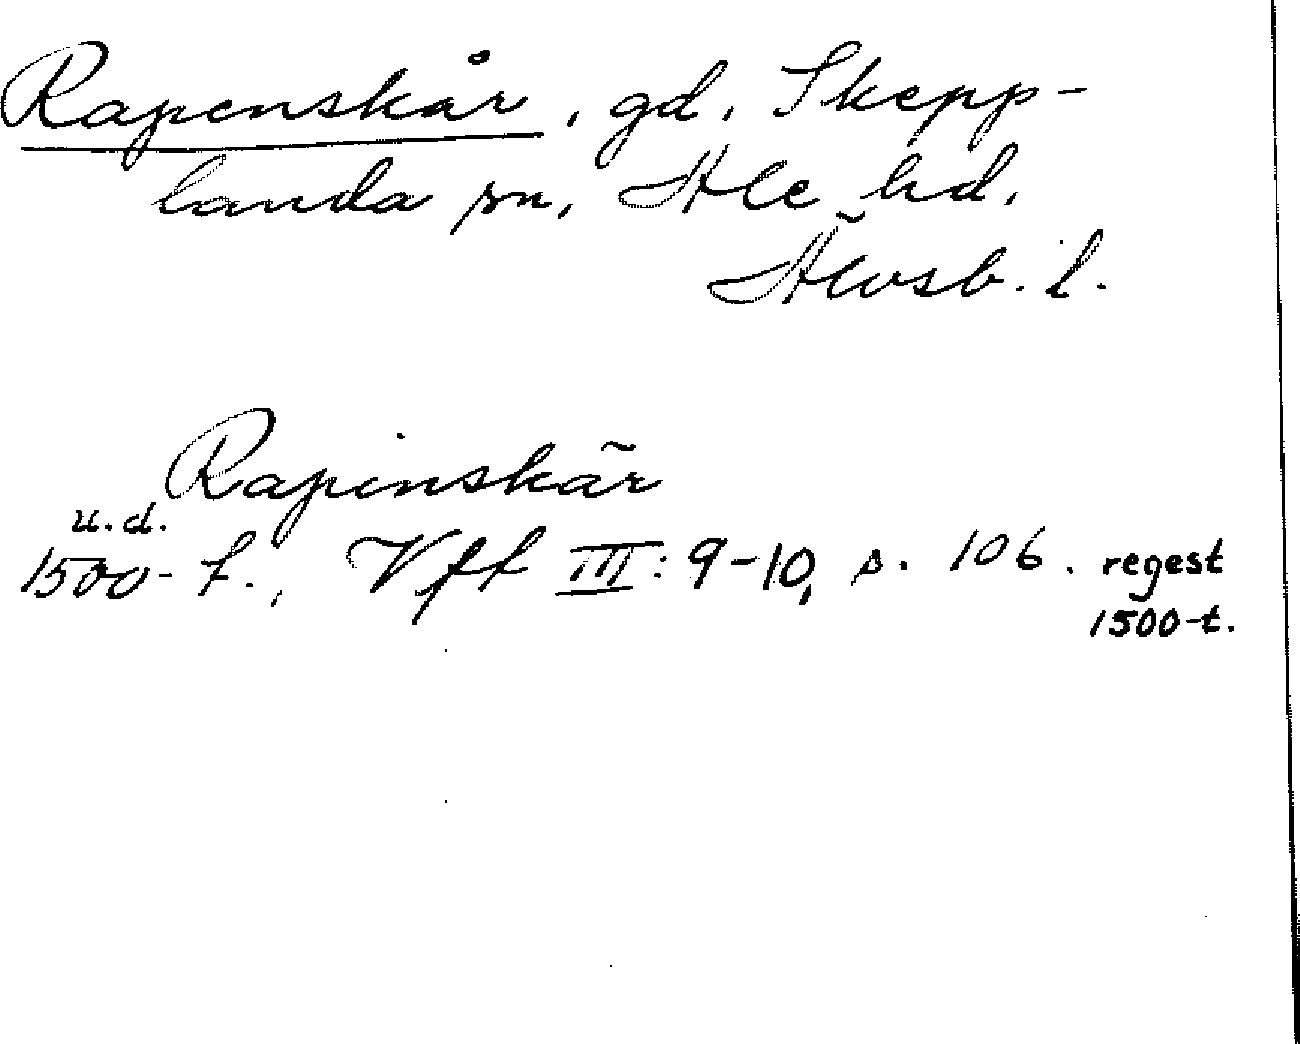 Rapenskår, gd, Skepp-
landa sn, Ale hd,
Älvsb. l.
Rapinskär
u.d.
1500-t., Vff III: 9-10, s. 106. regest
1500-t.